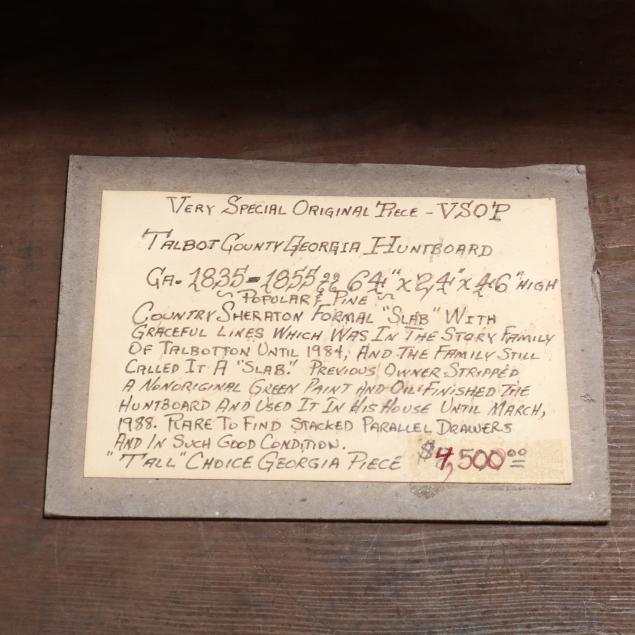 VERY SPECIAL ORIGINAL PIECE - VSOP
TALBOT COUNTY GEORGIA HUNTBOARD
GA. 1835-1855 64" x 24" x 46" HIGH
~ POPULAR & PINE ~
COUNTRY SHERATON FORMAL "SLAB" WITH
GRACEFUL LINES WHICH WAS IN THE STORY FAMILY
OF TALBOTTON UNTIL 1984, AND THE FAMILY STILL
CALLED IT A "SLAB." PREVIOUS OWNER STRIPPED
A NONORIGINAL GREEN PAINT AND OIL-FINISHED THE
HUNTBOARD AND USED IT IN HIS HOUSE UNTIL MARCH,
1988. RARE TO FIND STACKED PARALLEL DRAWERS
AND IN SUCH GOOD CONDITION.
"TALL" CHOICE GEORGIA PIECE $4,500.00